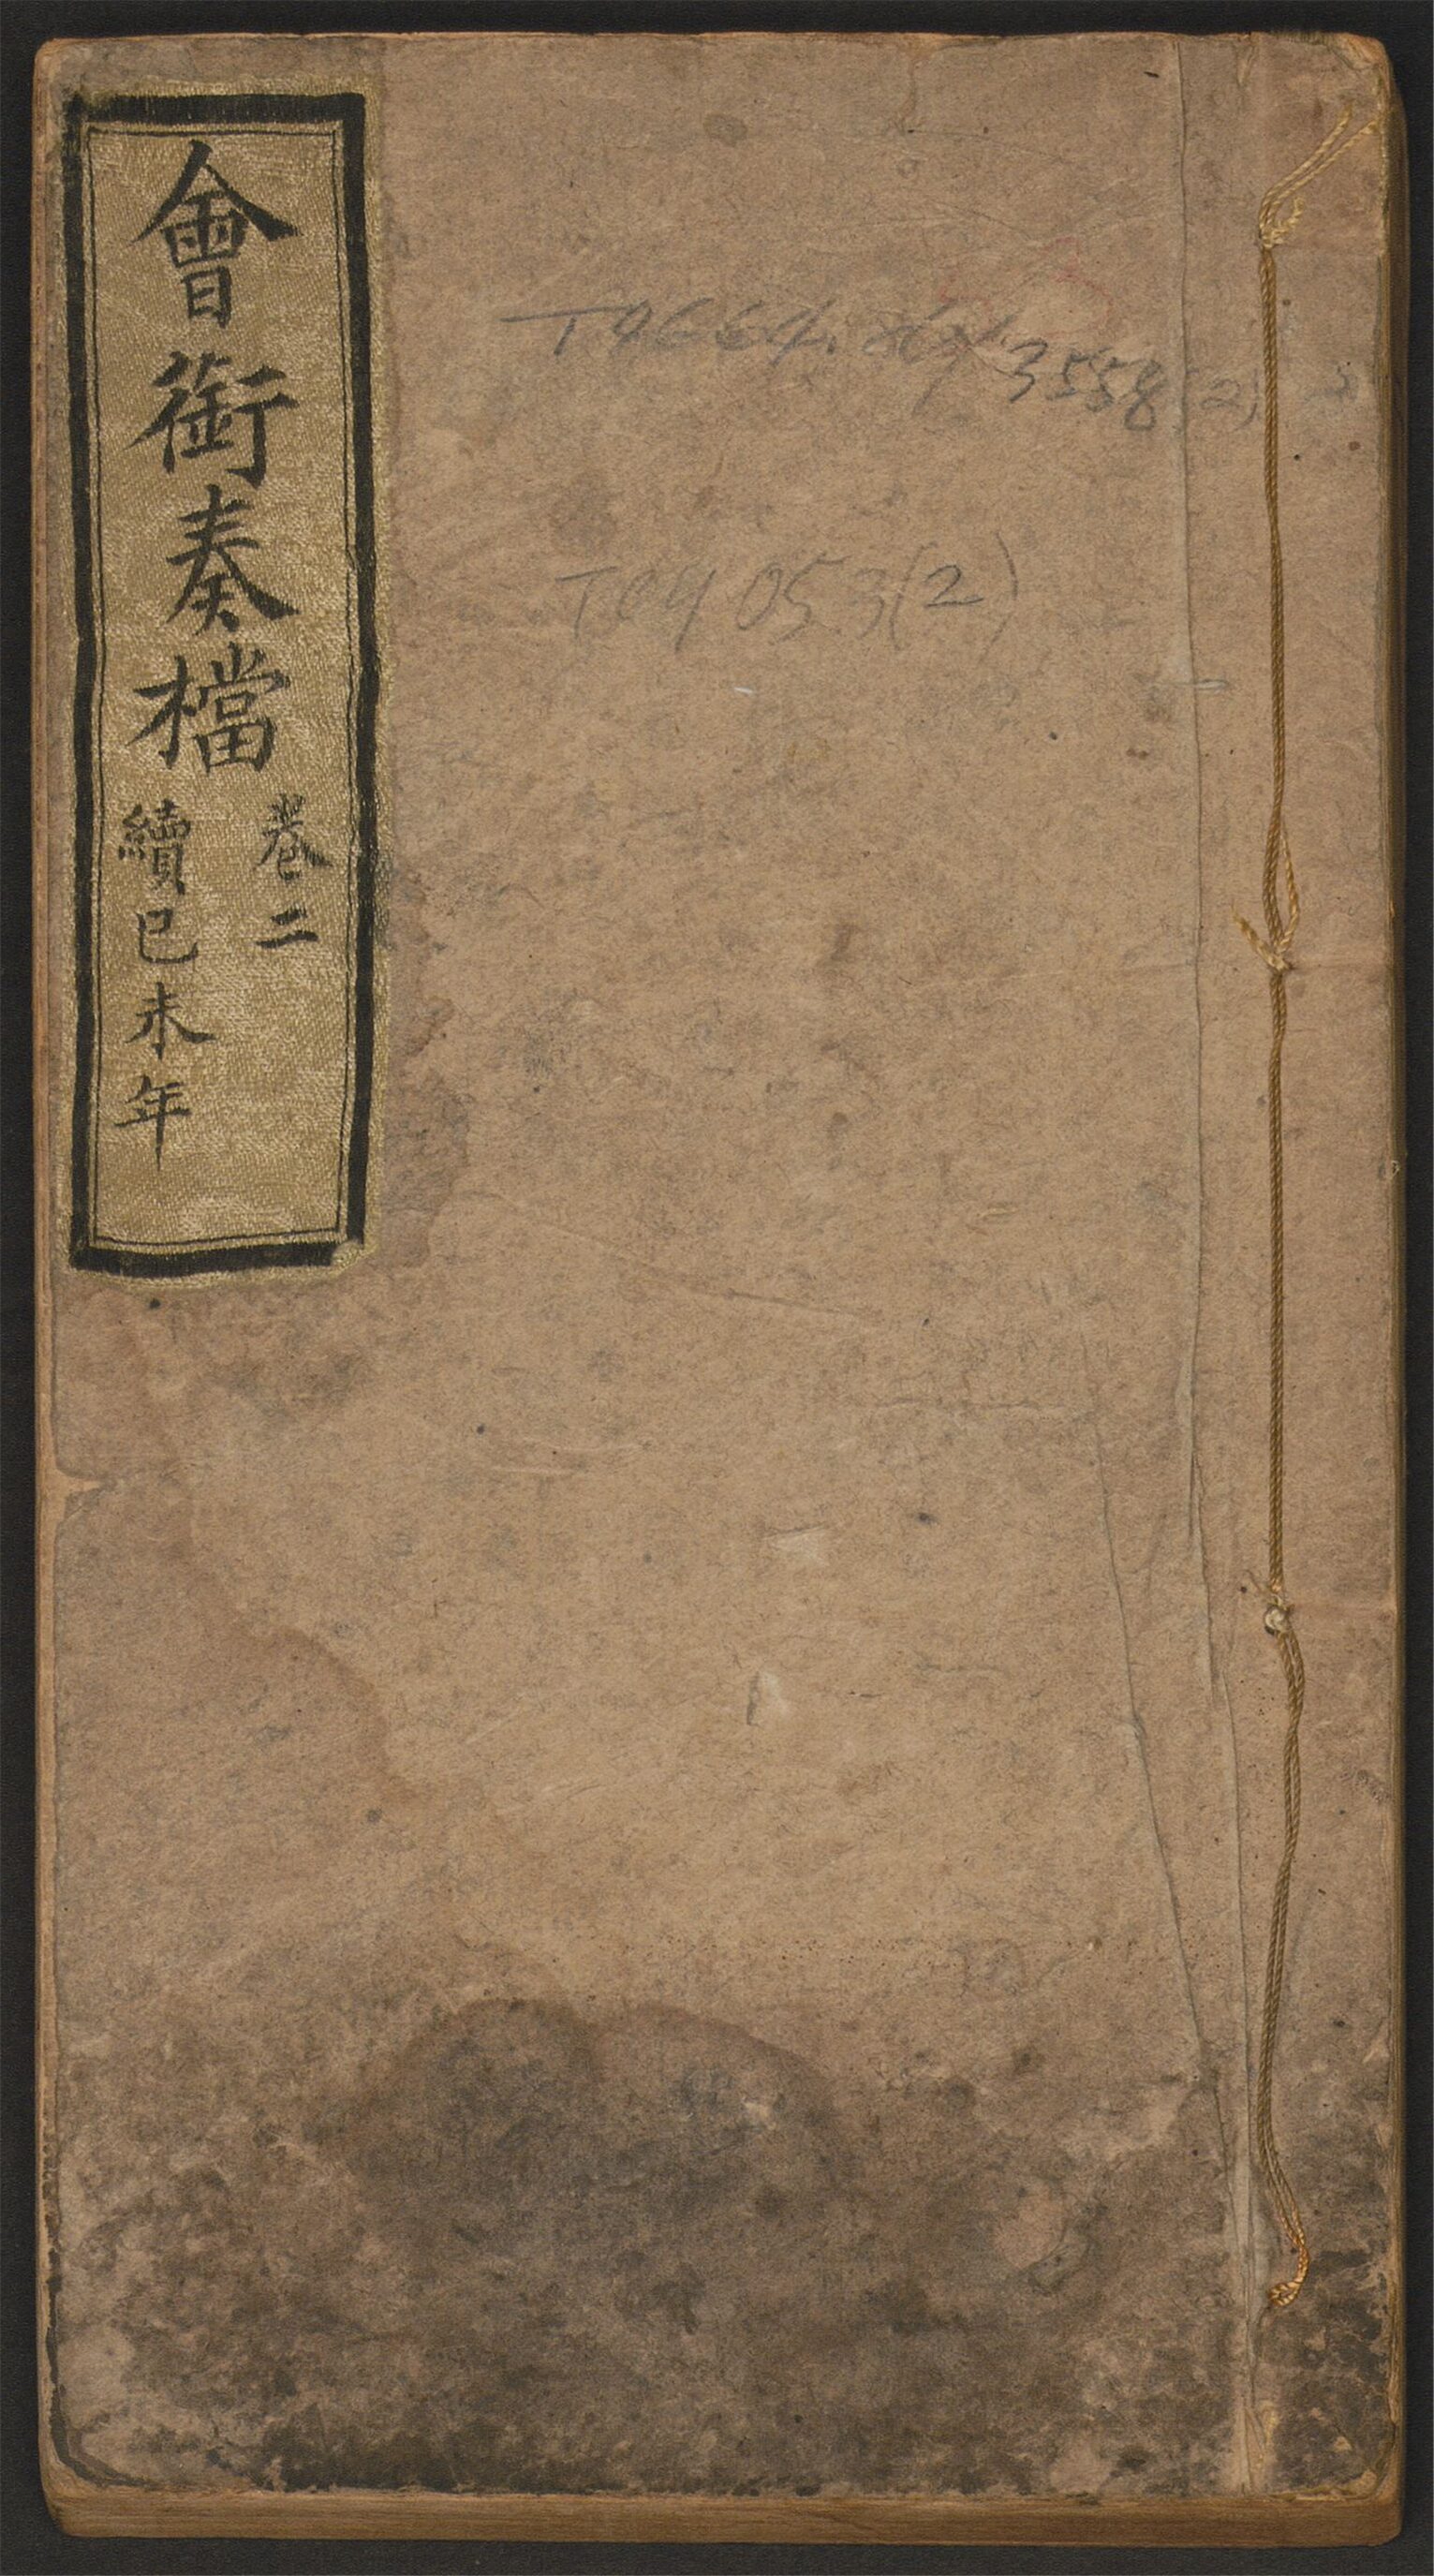 會銜奏檔
卷二
續己未年
3558(2)
TC4 053(2)